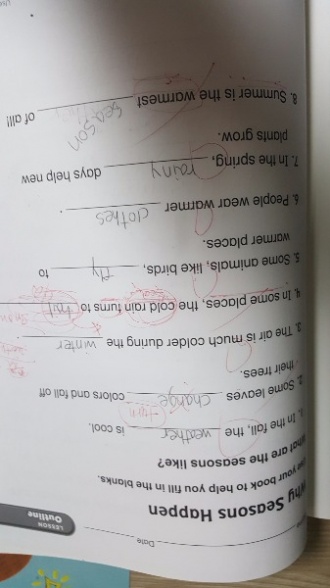 Date
LESSON
Outline
Why Seasons Happen
your book to help you fill in the blanks.
What are the seasons like?
1. In the fall, the weather is cool.
2. Some leaves change colors and fall off
their trees.
3. The air is much colder during the winter.
4. In some places, the cold rain turns to
5. Some animals, like birds, fly to
warmer places.
6. People wear warmer clothes.
7. In the spring, rainy days help new
plants grow.
8. Summer is the warmest season of all!